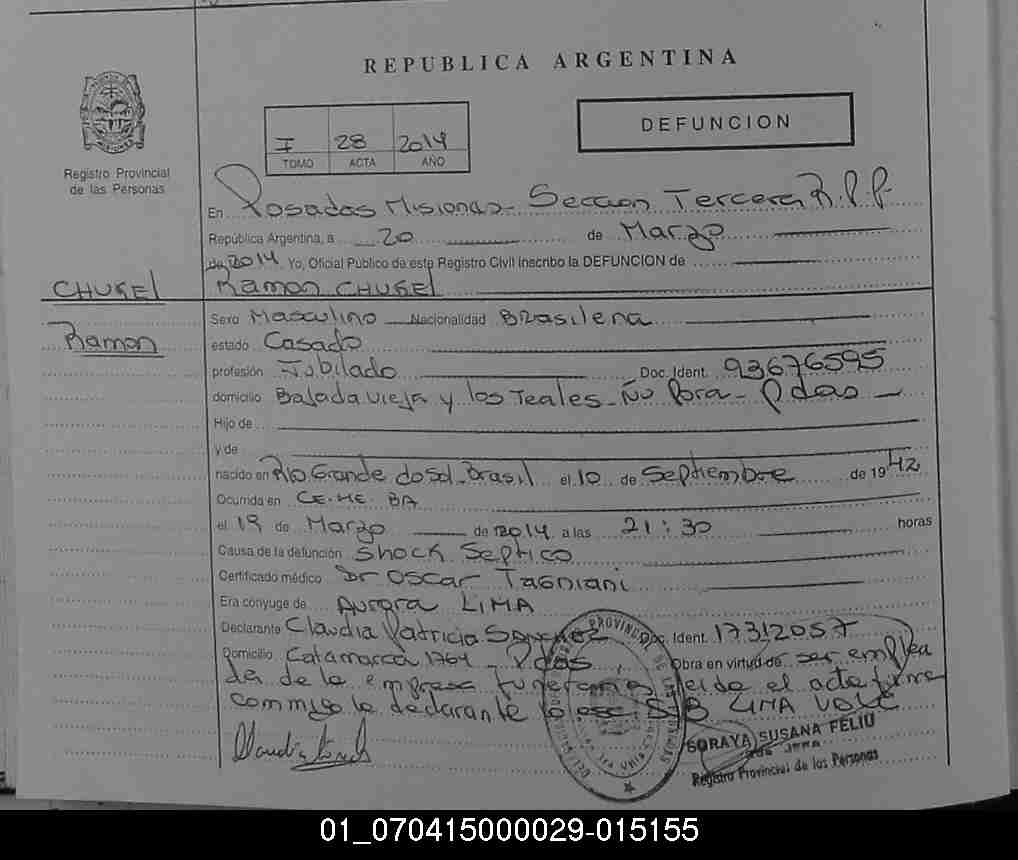 REPUBLICA ARGENTINA
Registro Provincial
de las Personas
I 28 2014
TOMO ACTA AÑO
DEFUNCION
En Posadas Misiones - Seccion Tercera R.P.P.
República Argentina, a 20 de Marzo
de 2014 Yo, Oficial Público de este Registro Civil inscribo la DEFUNCION de
CHUGEL Ramon CHUGEL
Ramon
Sexo Masculino Nacionalidad Brasilena
estado Casado
profesión Jubilado Doc. Ident. 93676595
domicilio Bajada vieja y los Teales - Ño Pora - Pdas
Hijo de
y de
nacido en Rio Grande do Sol - Brasil el 10 de Septiembre de 1942
Ocurrida en CE.ME.BA
el 19 de Marzo de 2014 a las 21:30 horas
Causa de la defunción Shock Septico
Certificado médico Dr Oscar Tagniani
Era cónyuge de Aurora LIMA
Declarante Claudia Patricia Sanchez Doc. Ident. 17312057
Domicilio Catamarca 1764 - Pdas, Obra en virtud de ser emplea
da de la empresa leida el acta firma
conmigo la declarante LIMA VALE
SORAYA SUSANA FELIU
Registro Provincial de las Personas
01_070415000029-015155